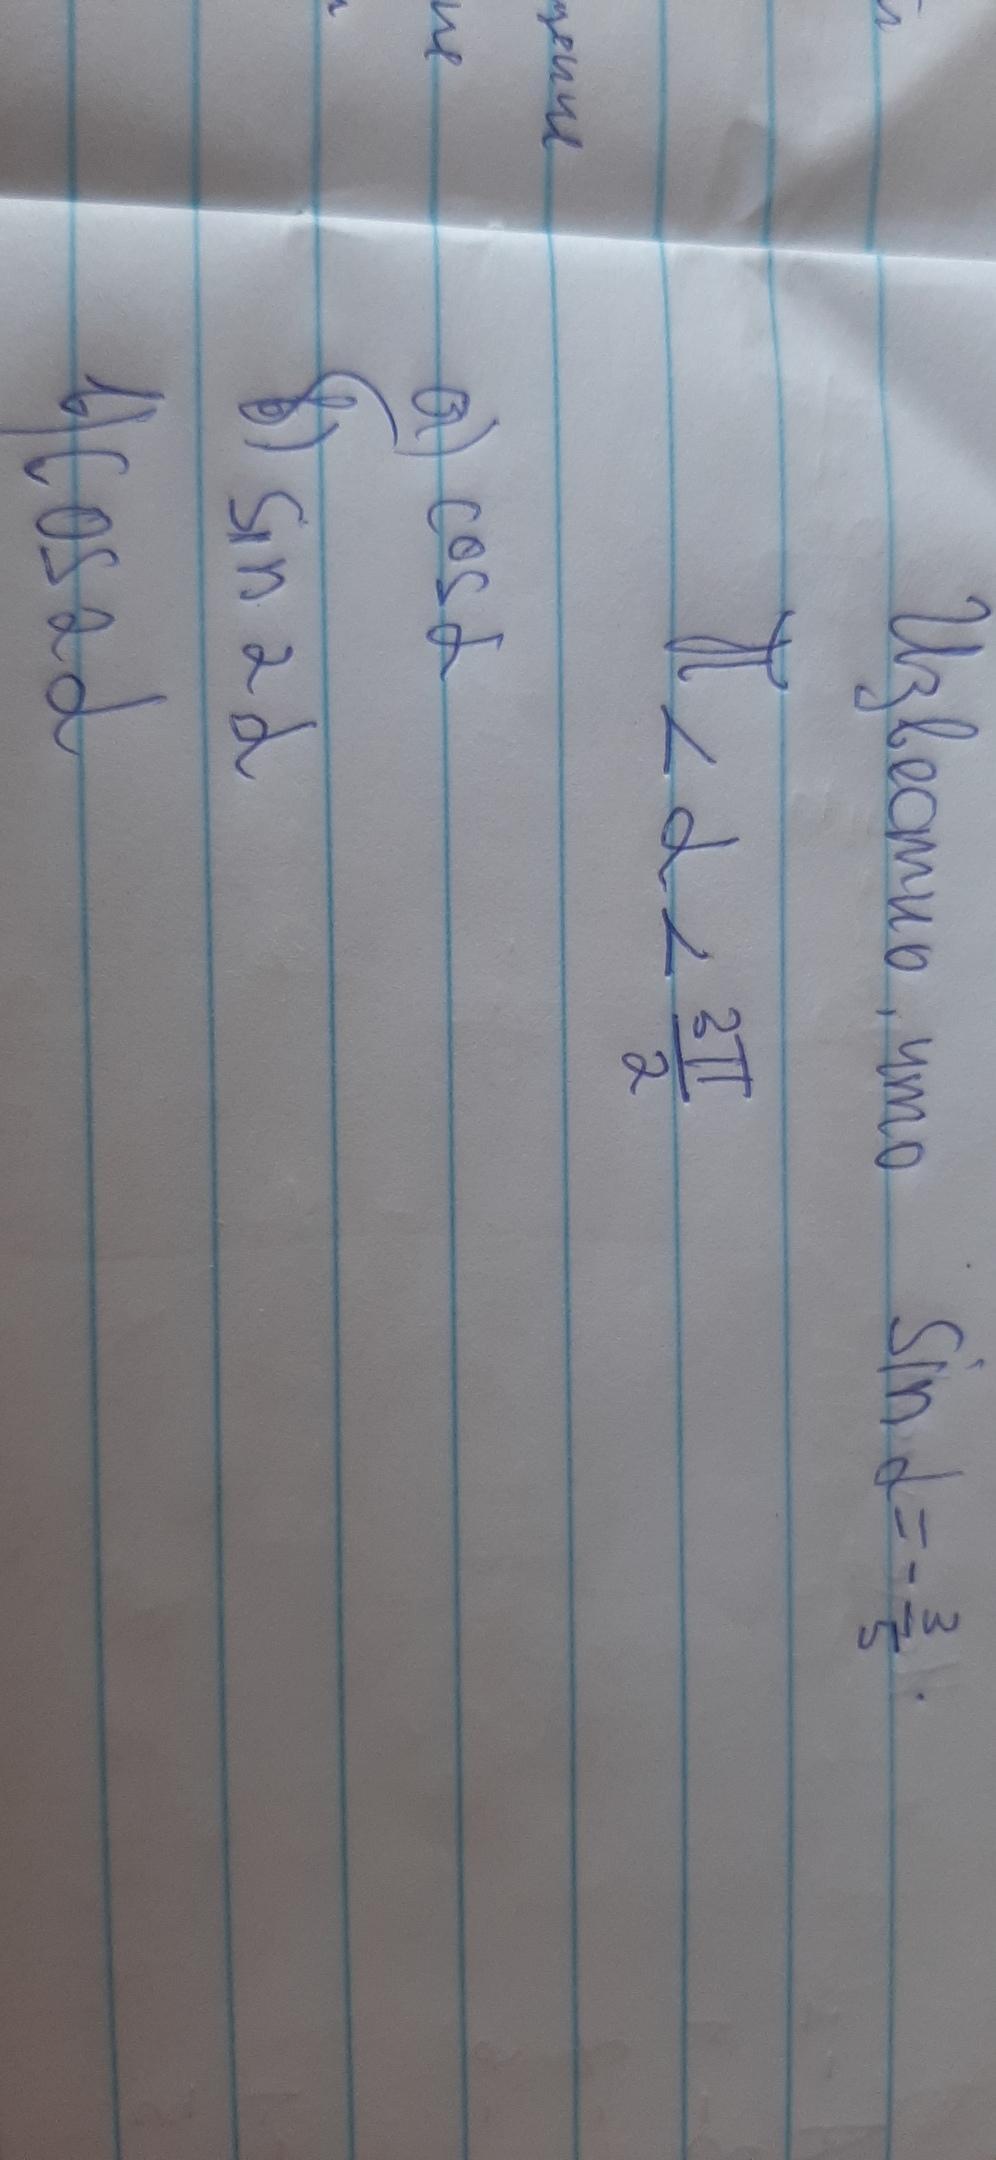 Известно, что sin α = - 3/5.
π < α < 3π/2
а) cos α
б) sin 2α
в) cos 2α